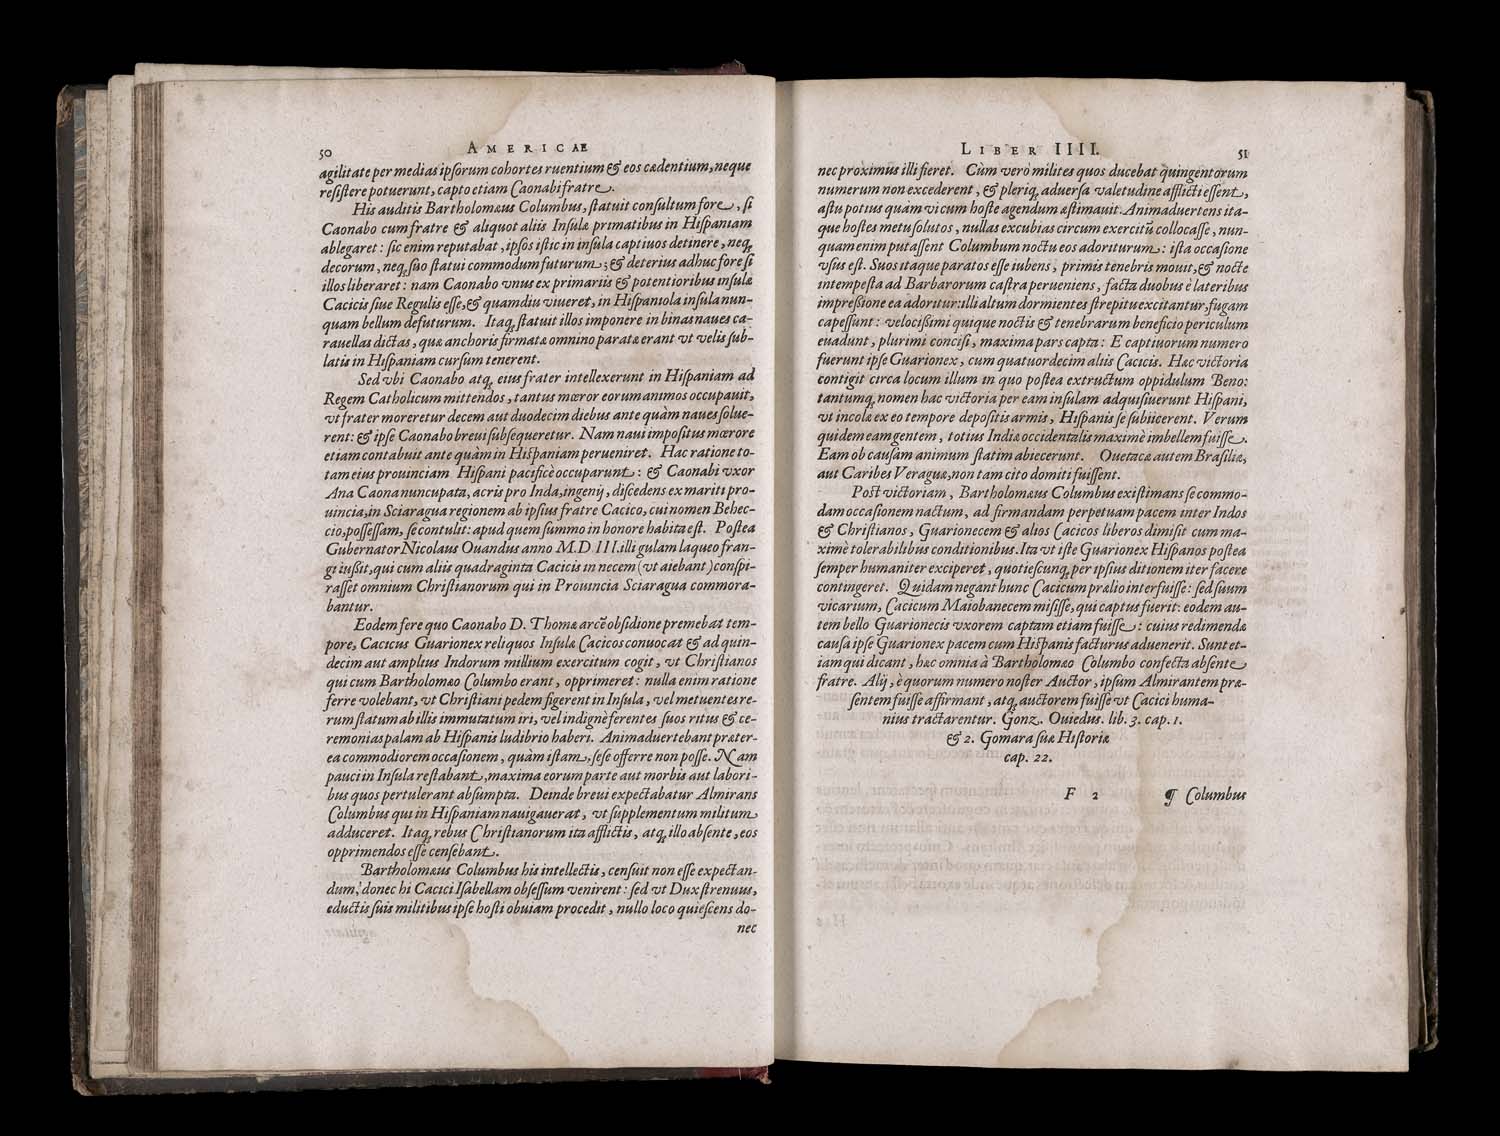 50
AMERICAE
agilitate per medias ipſorum cohortes ruentium & eos cædentium, neque
reſiſtere potuerunt, capto etiam Caonabi fratre.
His auditis Bartholomæus Columbus, ſtatuit conſultum fore, ſi
Caonabo cum fratre & aliquot aliis Inſulæ primatibus in Hiſpaniam
ablegaret: ſic enim reputabat, ipſos iſtic in inſula captiuos detinere, neq;
decorum, neq; ſuo ſtatui commodum futurum; & deterius adhuc fore ſi
illos liberaret: nam Caonabo vnus ex primariis & potentioribus inſulæ
Cacicis ſiue Regulis eſſe, & quamdiu viueret, in Hiſpaniola inſula nun-
quam bellum defuturum. Itaq; ſtatuit illos imponere in binas naues ca-
rauellas dictas, quæ anchoris firmatæ omnino paratæ erant vt velis ſub-
latis in Hiſpaniam curſum tenerent.
Sed vbi Caonabo atq; eius frater intellexerunt in Hiſpaniam ad
Regem Catholicum mittendos, tantus mœror eorum animos occupauit,
vt frater moreretur decem aut duodecim diebus ante quàm naues ſolue-
rent: & ipſe Caonabo breui ſubſequeretur. Nam naui impoſitus mœrore
etiam contabuit ante quàm in Hiſpaniam perueniret. Hac ratione to-
tam eius prouinciam Hiſpani pacificè occuparunt: & Caonabi vxor
Ana Caona nuncupata, acris pro Inda, ingenij, diſcedens ex mariti pro-
uincia, in Sciaragua regionem ab ipſius fratre Cacico, cui nomen Behec-
cio, poſſeſſam, ſe contulit: apud quem ſummo in honore habita eſt. Poſtea
Gubernator Nicolaus Ouandus anno M.D III. illi gulam laqueo fran-
gi iußit, qui cum aliis quadraginta Cacicis in necem (vt aiebant) conſpi-
raſſet omnium Chriſtianorum qui in Prouincia Sciaragua commora-
bantur.
Eodem fere quo Caonabo D. Thomæ arcē obſidione premebat tem-
pore, Cacicus Guarionex reliquos Inſulæ Cacicos conuocat & ad quin-
decim aut amplius Indorum millium exercitum cogit, vt Chriſtianos
qui cum Bartholomæo Columbo erant, opprimeret: nulla enim ratione
ferre volebant, vt Chriſtiani pedem figerent in Inſula, vel metuentes re-
rum ſtatum ab illis immutatum iri, vel indignè ferentes ſuos ritus & ce-
remonias palam ab Hiſpanis ludibrio haberi. Animaduertebant præter-
ea commodiorem occaſionem, quàm iſtam, ſeſe offerre non poſſe. Nam
pauci in Inſula reſtabant, maxima eorum parte aut morbis aut labori-
bus quos pertulerant abſumpta. Deinde breui expectabatur Almirans
Columbus qui in Hiſpaniam nauigauerat, vt ſupplementum militum
adduceret. Itaq; rebus Chriſtianorum ita afflictis, atq; illo abſente, eos
opprimendos eſſe cenſebant.
Bartholomæus Columbus his intellectis, cenſuit non eſſe expectan-
dum, donec hi Cacici Iſabellam obſeſſum venirent: ſed vt Dux ſtrenuus,
eductis ſuis militibus ipſe hoſti obuiam procedit, nullo loco quieſcens do-
nec
LIBER IIII.
51
nec proximus illi fieret. Cùm verò milites quos ducebat quingentorum
numerum non excederent, & pleriq; aduerſa valetudine afflicti eſſent,
aſtu potius quàm vi cum hoſte agendum æſtimauit. Animaduertens ita-
que hoſtes metu ſolutos, nullas excubias circum exercitũ collocaſſe, nun-
quam enim putaſſent Columbum noctu eos adoriturum: iſta occaſione
vſus eſt. Suos itaque paratos eſſe iubens, primis tenebris mouit, & nocte
intempeſta ad Barbarorum caſtra perueniens, facta duobus è lateribus
impreßione ea adoritur: illi altum dormientes ſtrepitu excitantur, fugam
capeſſunt: velocißimi quique noctis & tenebrarum beneficio periculum
euadunt, plurimi conciſi, maxima pars capta: E captiuorum numero
fuerunt ipſe Guarionex, cum quatuordecim aliis Cacicis. Hæc victoria
contigit circa locum illum in quo poſtea extructum oppidulum Beno:
tantumq; nomen hac victoria per eam inſulam adquiſiuerunt Hiſpani,
vt incolæ ex eo tempore depoſitis armis, Hiſpanis ſe ſubiicerent. Verum
quidem eam gentem, totius Indiæ occidentalis maximè imbellem fuiſſe.
Eam ob cauſam animum ſtatim abiecerunt. Ouetacæ autem Braſiliæ,
aut Caribes Veraguæ, non tam cito domiti fuiſſent.
Poſt victoriam, Bartholomæus Columbus exiſtimans ſe commo-
dam occaſionem nactum, ad firmandam perpetuam pacem inter Indos
& Chriſtianos, Guarionecem & alios Cacicos liberos dimiſit cum ma-
ximè tolerabilibus conditionibus. Ita vt iſte Guarionex Hiſpanos poſtea
ſemper humaniter exciperet, quotieſcunq; per ipſius ditionem iter facere
contingeret. Quidam negant hunc Cacicum prælio interfuiſſe: ſed ſuum
vicarium, Cacicum Maiobanecem miſiſſe, qui captus fuerit: eodem au-
tem bello Guarionecis vxorem captam etiam fuiſſe: cuius redimendæ
cauſa ipſe Guarionex pacem cum Hiſpanis facturus aduenerit. Sunt et-
iam qui dicant, hæc omnia à Bartholomæo Columbo confecta abſente
fratre. Alij, è quorum numero noſter Auctor, ipſum Almirantem præ-
ſentem fuiſſe affirmant, atq; auctorem fuiſſe vt Cacici huma-
nius tractarentur. Gonz. Ouiedus. lib. 3. cap. 1.
& 2. Gomara ſuæ Hiſtoriæ
cap. 22.
F 2
¶ Columbus